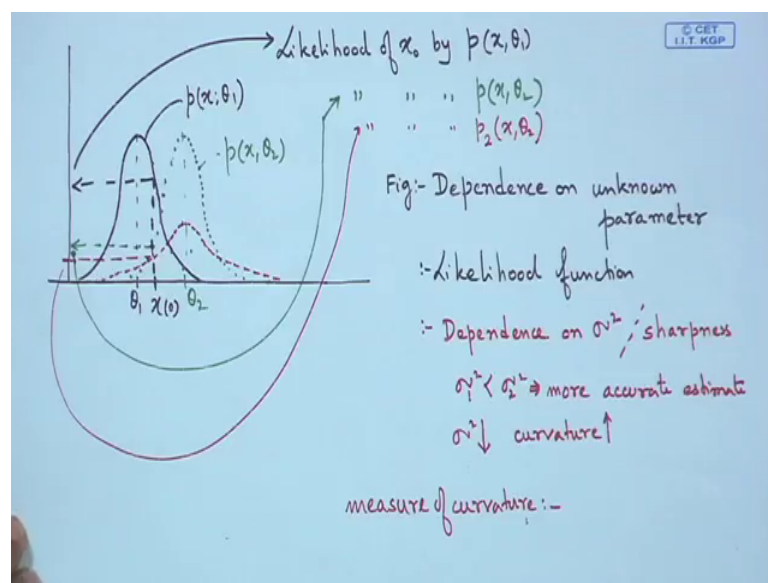 © CET
I.I.T. KGP
Likelihood of x₀ by p(x,θ₁)
" " " p(x,θ₂)
" " " p₂(x,θ₂)
p(x;θ₁)
p(x,θ₂)
Fig:- Dependence on unknown
parameter
:- Likelihood function
:- Dependence on σ² / sharpness
σ₁² < σ₂² ⇒ more accurate estimate
σ²↓ curvature↑
θ₁ x(0) θ₂
measure of curvature :-